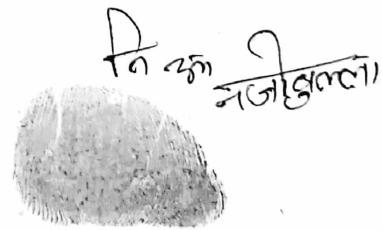 नि अं नजीबुल्ला